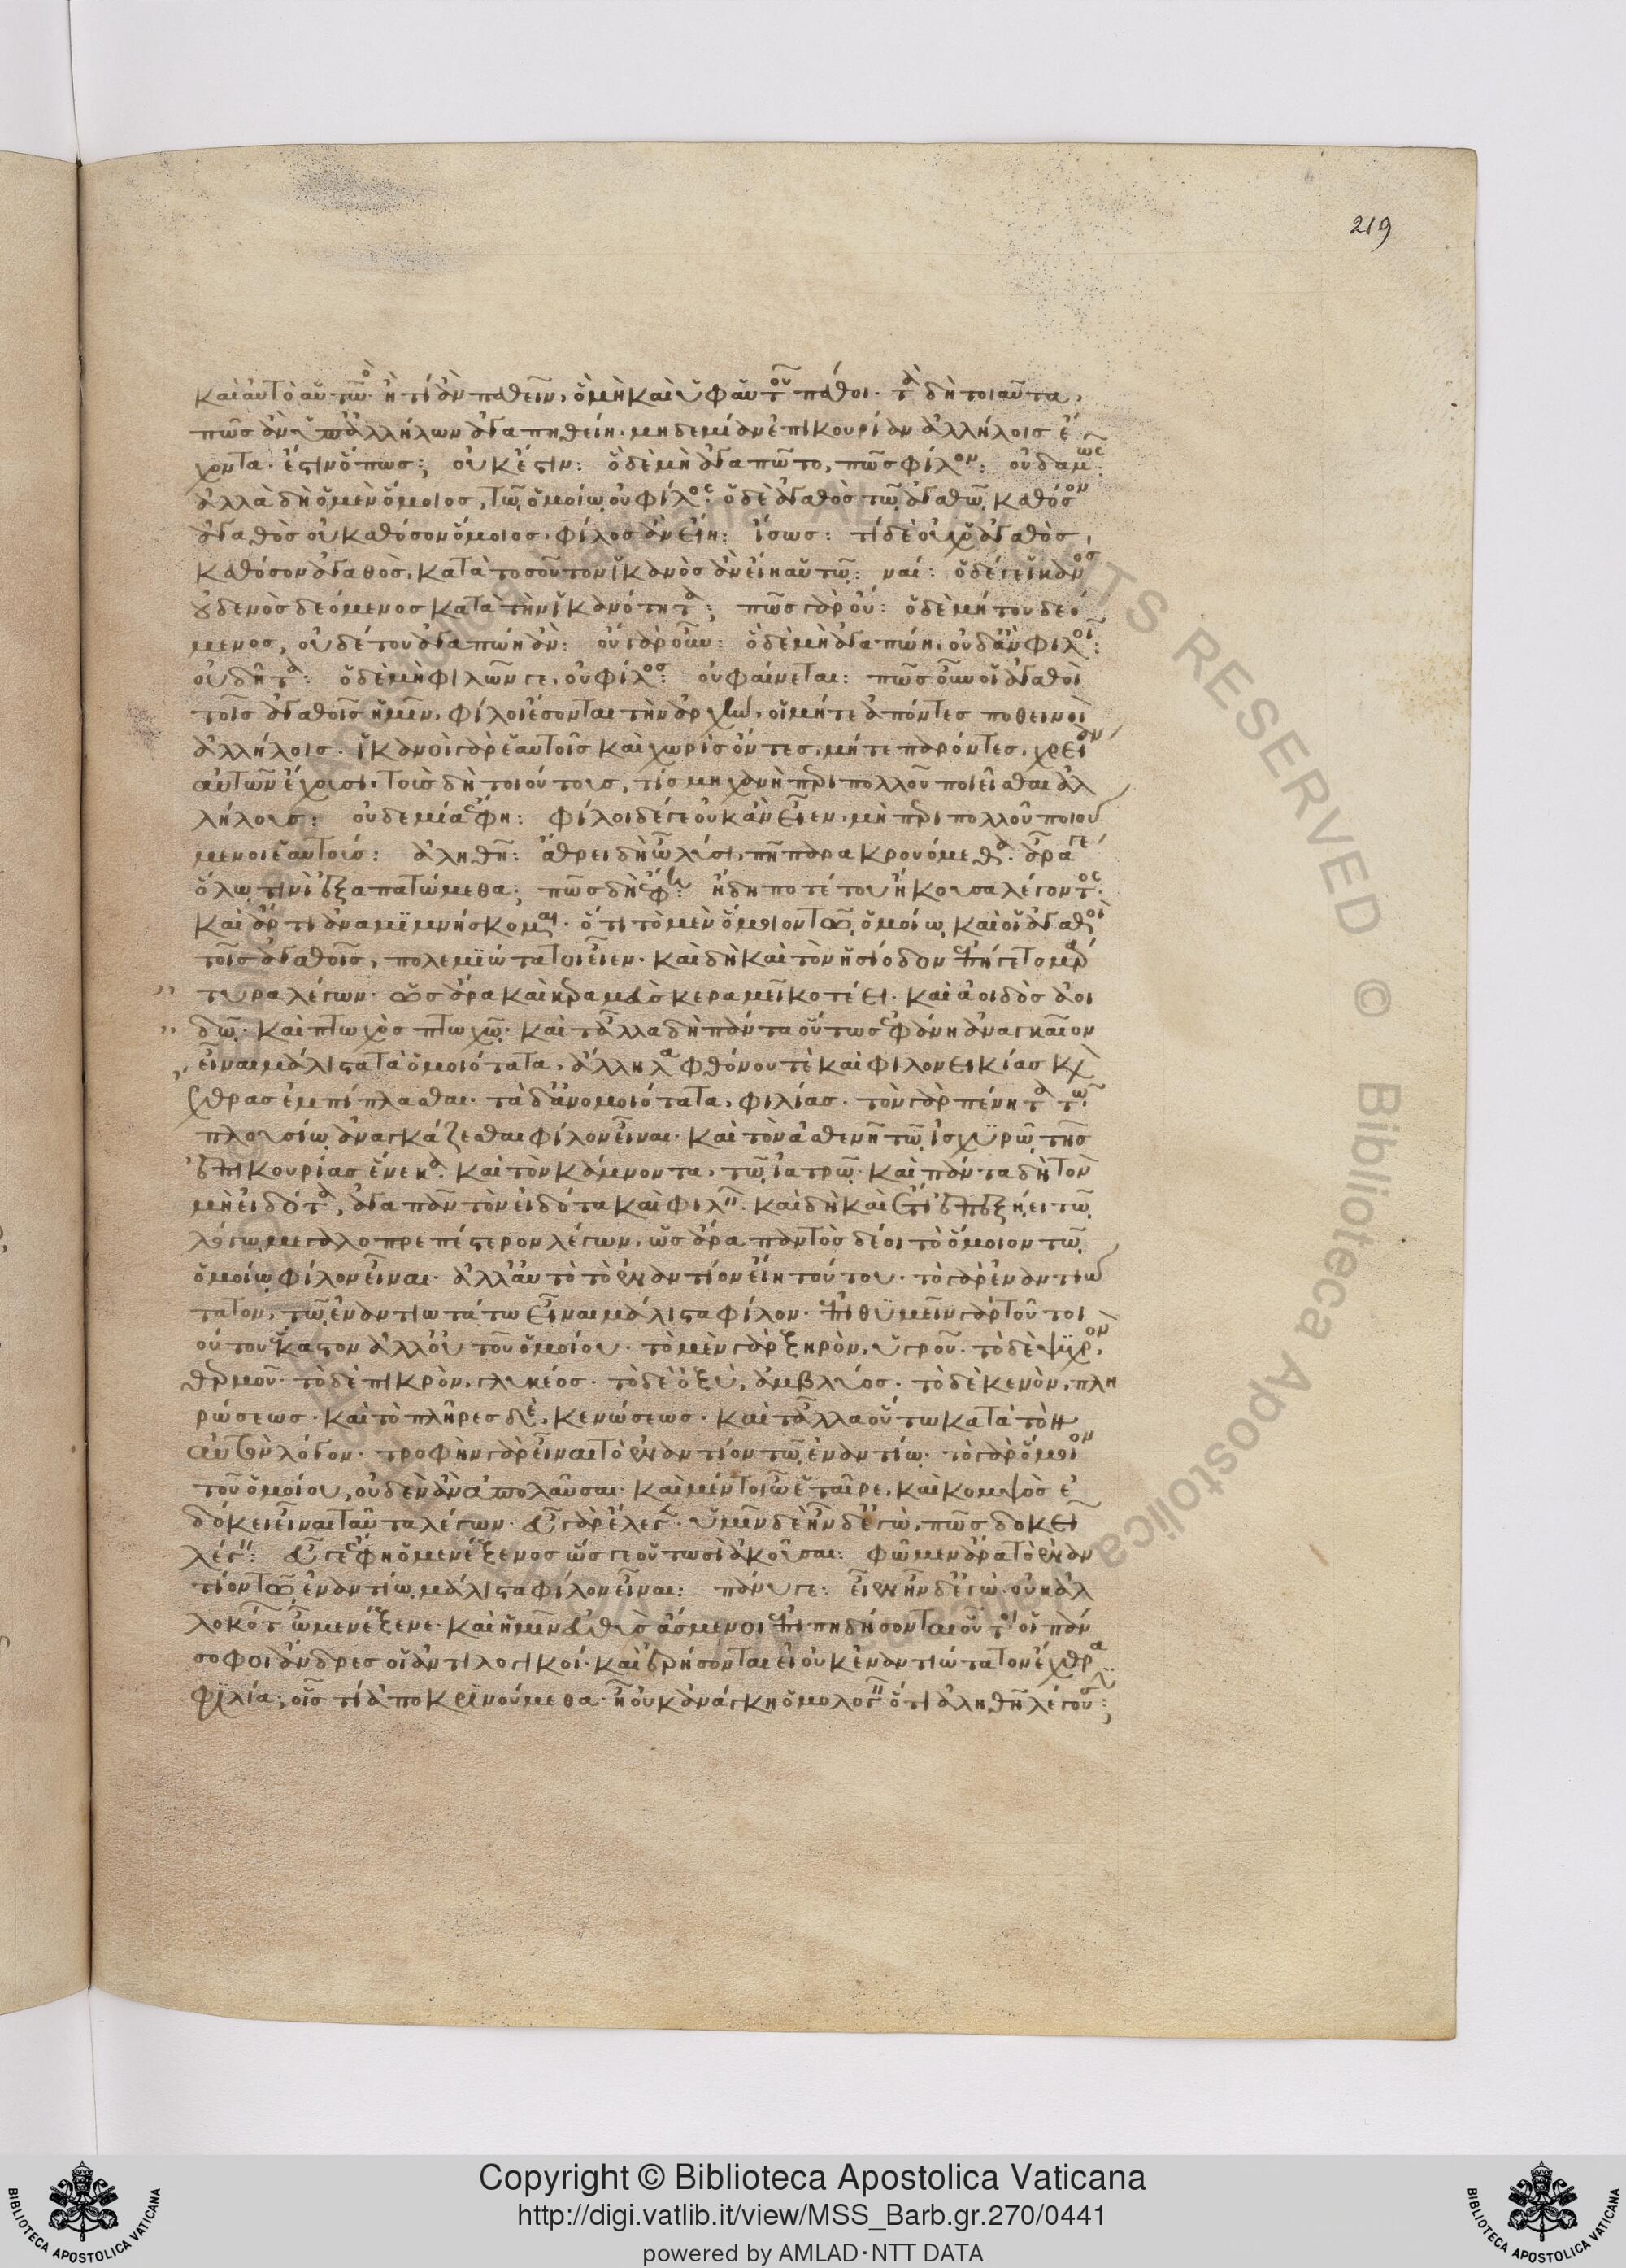 219
καὶ αὐτὸ αὑτῶ· ἢ τί ἂν παθεῖν, ὃ μὴ καὶ ὑφ' αὑτοῦ πάθοι· τὰ δὴ τοιαῦτα,
πῶς ἂν ὑπ' ἀλλήλων ἀγαπηθείη· μηδεμίαν ἐπικουρίαν ἀλλήλοις ἔ
χοντα· ἔστιν ὅπως; οὐκ ἔστιν: ὃ δὲ μὴ ἀγαπῶτο, πῶς φίλον: οὐδαμῶς:
ἀλλὰ δὴ ὁ μὲν ὅμοιος, τῶ ὁμοίω οὐ φίλος· ὁ δὲ ἀγαθὸς τῶ ἀγαθῶ καθόσον
ἀγαθὸς οὐ καθόσον ὅμοιος· φίλος ἂν εἴη: ἴσως: τί δὲ οὐχ ὁ ἀγαθὸς,
καθόσον ἀγαθὸς, κατὰ τοσοῦτον ἱκανὸς ἂν εἴη αὑτῶ: ναί: ὁ δέ γε ἱκανὸς
οὐδενὸς δεόμενος κατὰ τὴν ἱκανότητα; πῶς γὰρ οὔ: ὁ δὲ μή του δεό
μενος, οὐδέ τι ἀγαπώη ἄν: οὐ γὰρ οὖν: ὁ δὲ μὴ ἀγαπώη, οὐδ' ἂν φιλοῖ:
οὐ δῆτα: ὁ δὲ μὴ φιλῶν γε, οὐ φίλος: οὐ φαίνεται: πῶς οὖν οἱ ἀγαθοὶ
τοῖς ἀγαθοῖς ἡμῖν, φίλοι ἔσονται τὴν ἀρχὴν, οἳ μήτε ἀπόντες ποθεινοὶ
ἀλλήλοις· ἱκανοὶ γὰρ ἑαυτοῖς καὶ χωρὶς ὄντες, μήτε παρόντες, χρείαν
αὐτῶν ἔχουσι· τοὺς δὴ τοιούτους, τίς μηχανὴ περὶ πολλοῦ ποιεῖσθαι ἀλ
λήλους: οὐδεμία ἔφη: φίλοι δέ γε οὐκ ἂν εἶεν, μὴ περὶ πολλοῦ ποιού
μενοι ἑαυτούς: ἀληθῆ: ἄθρει δὴ ὦ λύσι, πῆ παρακρουόμεθα· ἆρά γε
ὅλω τινὶ ἐξαπατώμεθα; πῶς δὴ ἔφη: ἤδη ποτέ του ἤκουσα λέγοντος·
καὶ ἄρτι ἀναμιμνήσκομαι· ὅτι τὸ μὲν ὅμοιον τῶ ὁμοίω καὶ οἱ ἀγαθοὶ
τοῖς ἀγαθοῖς, πολεμιώτατοι εἶεν· καὶ δὴ καὶ τὸν ἡσίοδον ἐπήγετο μάρ
τυρα λέγων· ὡς ἄρα καὶ κεραμεὺς κεραμεῖ κοτέει· καὶ ἀοιδὸς ἀοι
δῶ· καὶ πτωχὸς πτωχῶ· καὶ τἆλλα δὴ πάντα οὕτως ἔφη ἀναγκαῖον
εἶναι μάλιστα τὰ ὁμοιότατα, ἄλληλα φθόνου τὲ καὶ φιλονεικίας καὶ
ἔχθρας ἐμπίπλασθαι· τὰ δ' ἀνομοιότατα, φιλίας· τὸν γὰρ πένητα τῶ
πλουσίω ἀναγκάζεσθαι φίλον εἶναι· καὶ τὸν ἀσθενῆ τῶ ἰσχυρῶ τῆς
ἐπικουρίας ἕνεκα· καὶ τὸν κάμνοντα, τῶ ἰατρῶ· καὶ πάντα δὴ τὸν
μὴ εἰδότα, ἀγαπᾶν τὸν εἰδότα καὶ φιλεῖν· καὶ δὴ καὶ ἔτι ἐπεξήει τῶ
λόγω μεγαλοπρεπέστερον λέγων, ὡς ἄρα παντὸς δέοι τὸ ὅμοιον τῶ
ὁμοίω φίλον εἶναι· ἀλλ' αὐτὸ τὸ ἐναντίον εἴη τούτου· τὸ γὰρ ἐναντιώ
τατον, τῶ ἐναντιωτάτω εἶναι μάλιστα φίλον· ἐπιθυμεῖν γὰρ τοῦ τοι
ούτου ἕκαστον ἀλλ' οὐ τοῦ ὁμοίου· τὸ μὲν γὰρ ξηρὸν, ὑγροῦ· τὸ δὲ ψυχρὸν,
θερμοῦ· τὸ δὲ πικρὸν, γλυκέος· τὸ δὲ ὀξὺ, ἀμβλέος· τὸ δὲ κενὸν, πλη
ρώσεως· καὶ τὸ πλῆρες δὲ, κενώσεως· καὶ τἆλλα οὕτω κατὰ τὸν
αὐτὸν λόγον· τροφὴν γὰρ εἶναι τὸ ἐναντίον τῶ ἐναντίω· τὸ γὰρ ὅμοιον
τοῦ ὁμοίου, οὐδὲν ἂν ἀπολαῦσαι· καὶ μέντοι ὦ ἑταῖρε, καὶ κομψὸς ἐ
δόκει εἶναι ταῦτα λέγων· εὖ γὰρ ἔλεγεν· ὑμῖν δὲ ἦν δ' ἐγὼ, πῶς δοκεῖ
λέγειν: εὖ γε ἔφη ὁ μενέξενος ὥς γε οὑτωσὶ ἀκοῦσαι: φῶμεν ἄρα τὸ ἐναν
τίον τῶ ἐναντίω μάλιστα φίλον εἶναι: πάνυ γε: εἶεν ἦν δ' ἐγώ· οὐκ ἀλ
λόκοτον ὦ μενέξενε· καὶ ἡμῖν εὐθὺς ἄσμενοι ἐπιπηδήσονται οὗτοι οἱ πάν
σοφοι ἄνδρες οἱ ἀντιλογικοί· καὶ ἐρήσονται εἰ οὐκ ἐναντιώτατον ἔχθρα
φιλία; οἷς τί ἀποκρινούμεθα· ἢ οὐκ ἀνάγκη ὁμολογεῖν ὅτι ἀληθῆ λέγουσιν;
Copyright © Biblioteca Apostolica Vaticana
http://digi.vatlib.it/view/MSS_Barb.gr.270/0441
powered by AMLAD·NTT DATA